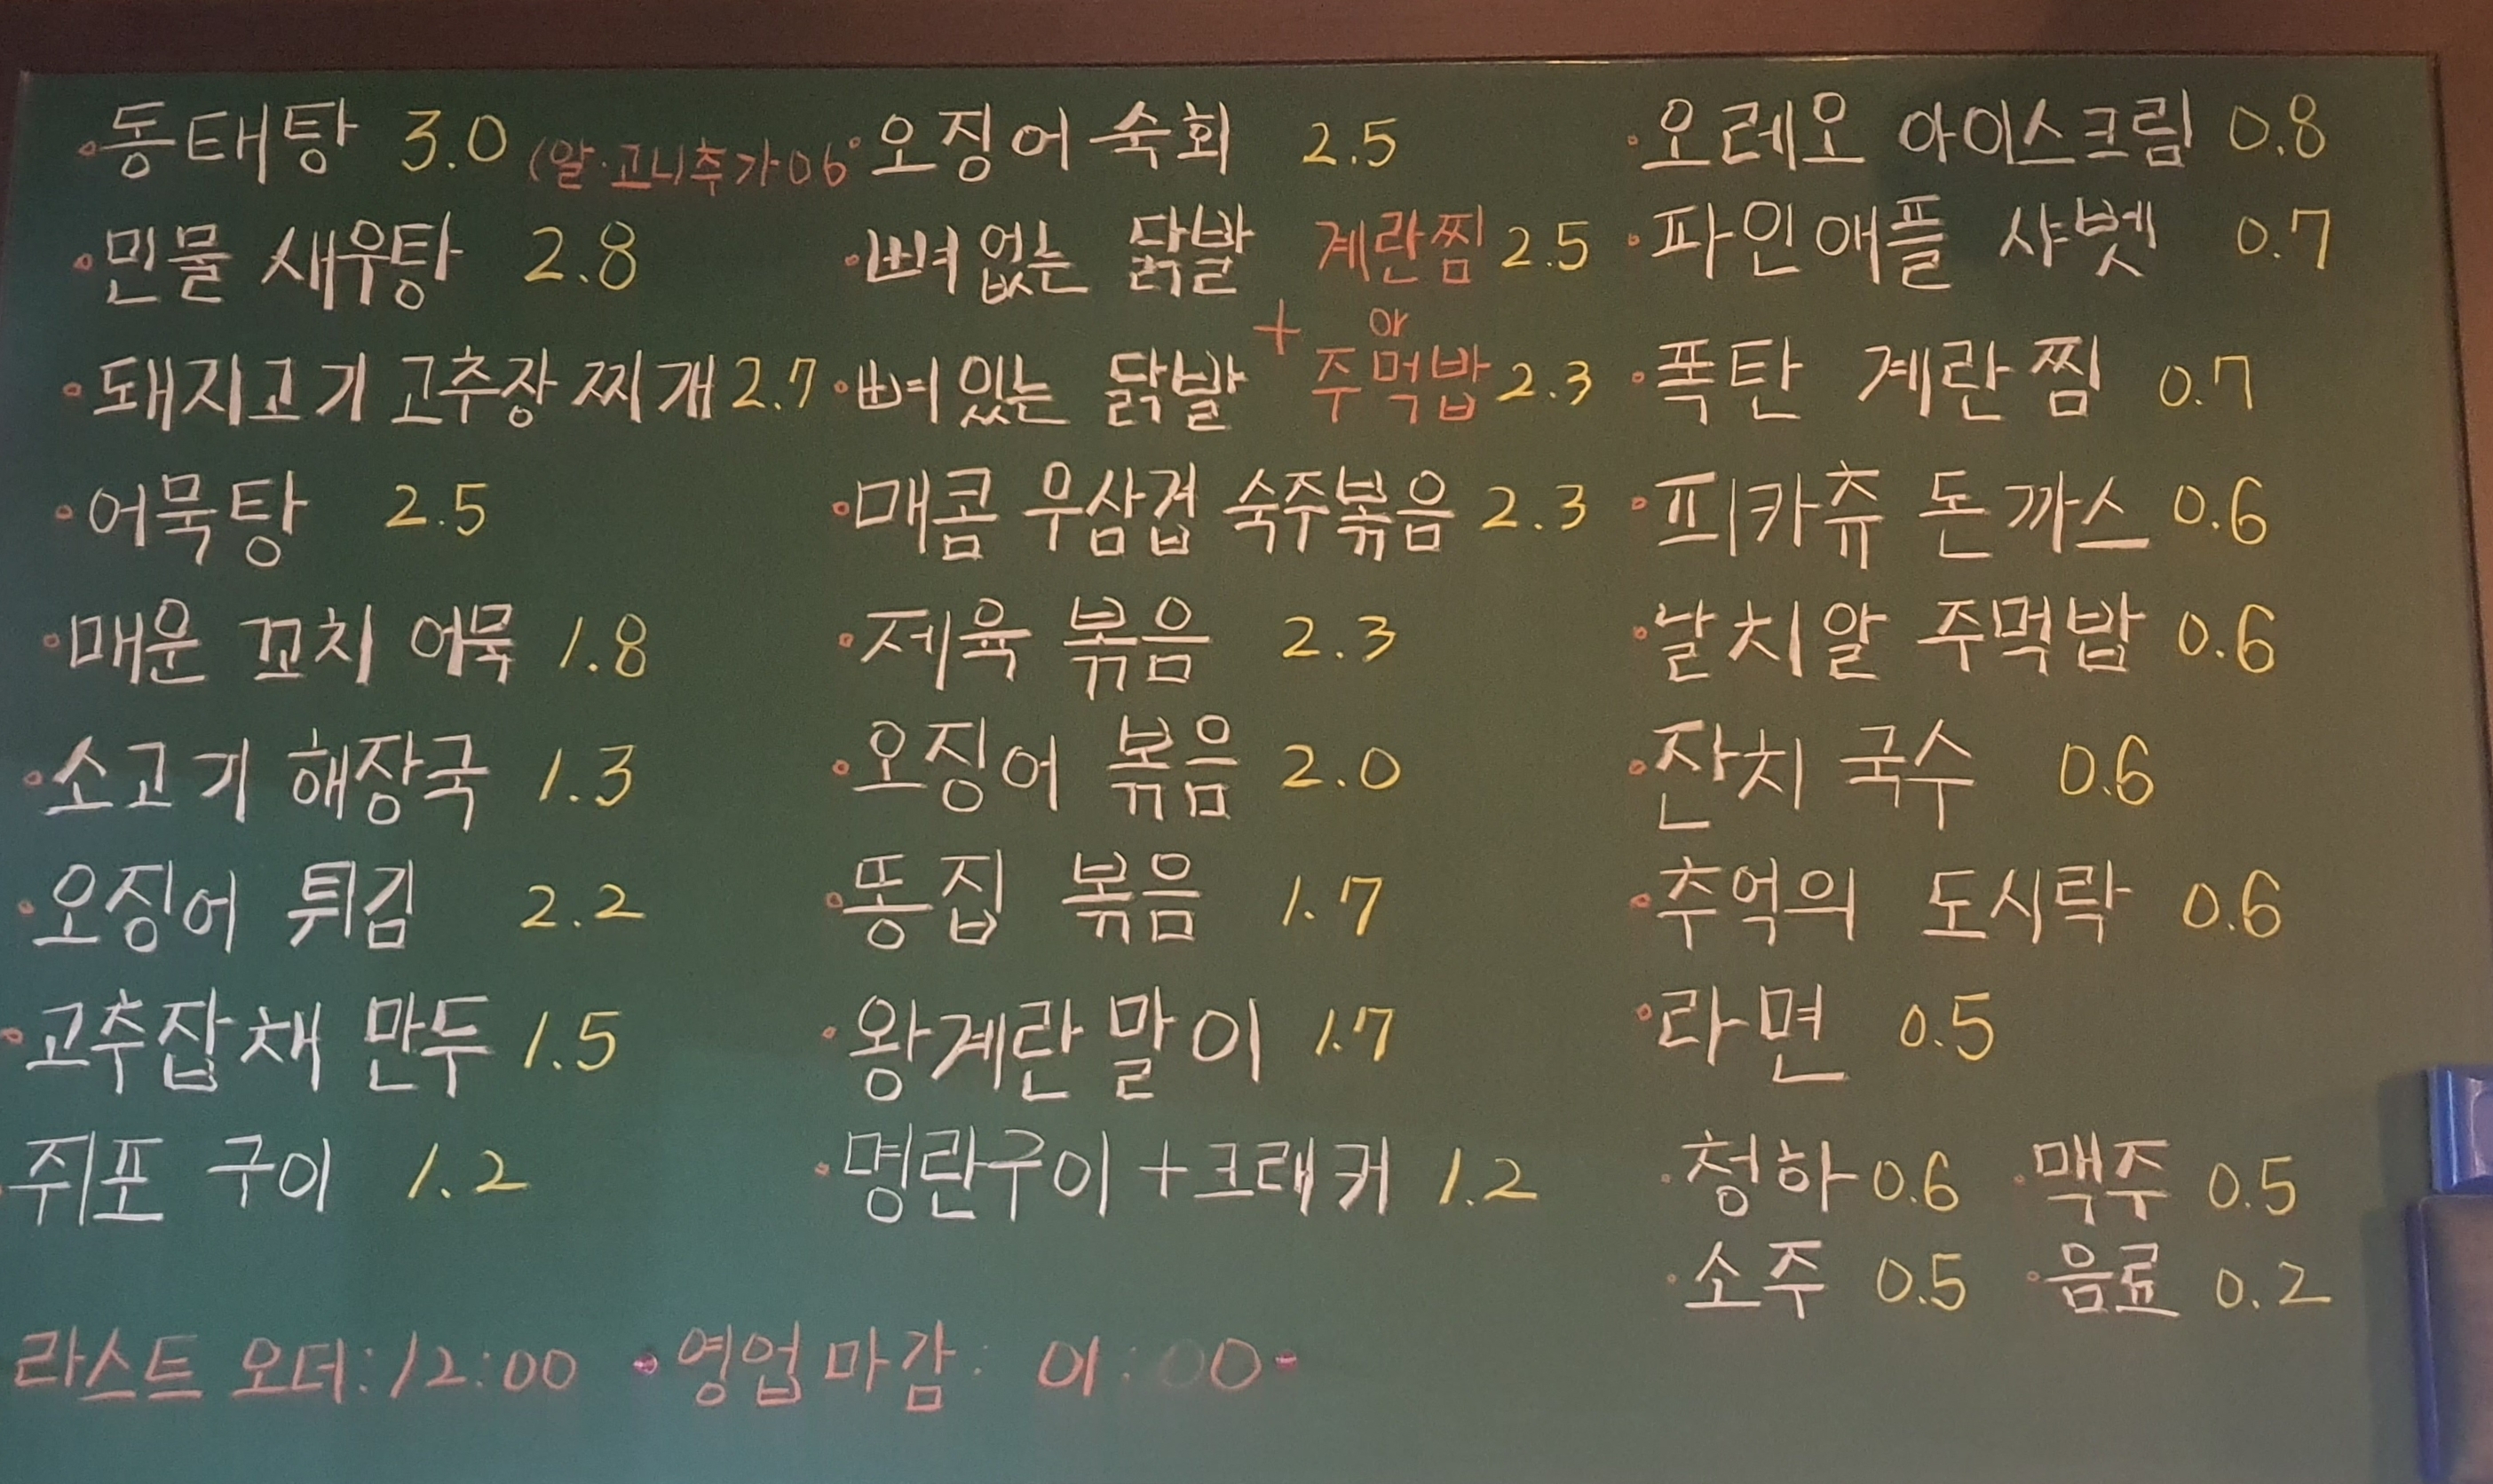 ·동태탕 3.0 (알·고니추가 0.6
·민물 새우탕 2.8
·돼지고기 고추장 찌개 2.7
·어묵탕 2.5
·매운 꼬치 어묵 1.8
·소고기 해장국 1.3
·오징어 튀김 2.2
·고추잡채 만두 1.5
·쥐포 구이 1.2
·오징어 숙회 2.5
·뼈없는 닭발 계란찜 2.5
+ or
·뼈있는 닭발 주먹밥 2.3
·매콤 우삼겹 숙주볶음 2.3
·제육 볶음 2.3
·오징어 볶음 2.0
·똥집 볶음 1.7
·왕계란말이 1.7
·명란구이+크래커 1.2
·오레오 아이스크림 0.8
·파인애플 샤벳 0.7
·폭탄 계란찜 0.7
·피카츄 돈까스 0.6
·날치알 주먹밥 0.6
·잔치 국수 0.6
·추억의 도시락 0.6
·라면 0.5
·청하 0.6 ·맥주 0.5
·소주 0.5 ·음료 0.2
라스트 오더:12:00 ·영업마감: 01:00